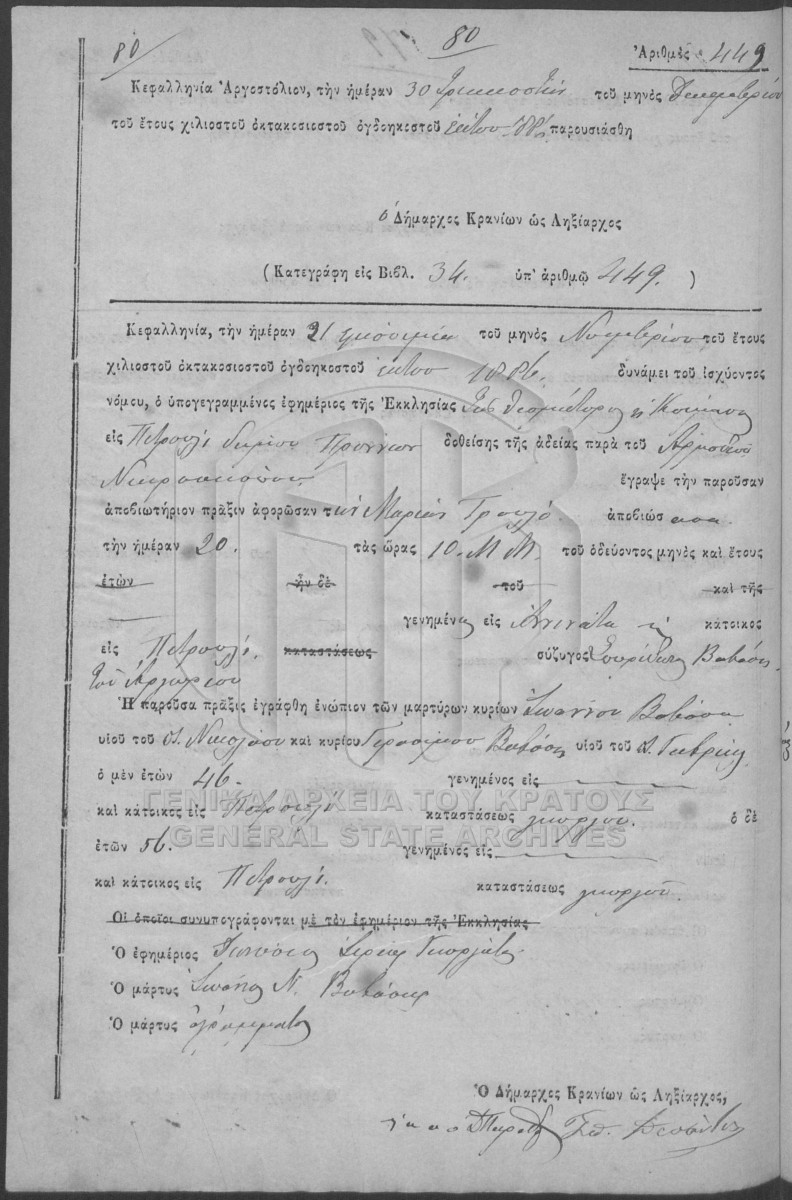 80 80 Ἀριθμὸς 449
Κεφαλληνία Ἀργοστόλιον, τὴν ἡμέραν 30 Τριακοστὴν τοῦ μηνὸς Δεκεμβρίου
τοῦ ἔτους χιλιοστοῦ ὀκτακοσιοστοῦ ὀγδοηκοστοῦ ἕκτου παρουσιάσθη
ὁ Δήμαρχος Κρανίων ὡς Ληξίαρχος
(Κατεγράφη εἰς Βιβλ. 34. ὑπ' ἀριθμῷ 449.)
Κεφαλληνία, τὴν ἡμέραν 21 τοῦ μηνὸς Νοεμβρίου τοῦ ἔτους
χιλιοστοῦ ὀκτακοσιοστοῦ ὀγδοηκοστοῦ ἕκτου 1886. δυνάμει τοῦ ἰσχύοντος
νόμου, ὁ ὑπογεγραμμένος ἐφημέριος τῆς Ἐκκλησίας τῆς Θεομήτορος
εἰς Πετρουλὶ δήμου Πρόννων δοθείσης τῆς ἀδείας παρὰ τοῦ
Νεκροσκόπου ἔγραψε τὴν παροῦσαν
ἀποβιωτήριον πρᾶξιν ἀφορῶσαν τὴν Μαρίαν ἀποβιώσασα
τὴν ἡμέραν 20. τὰς ὥρας 10. Μ.Μ. τοῦ ὁδεύοντος μηνὸς καὶ ἔτους
ἐτῶν ἦν δὲ τοῦ καὶ τῆς
γενημένη εἰς κάτοικος
εἰς Πετρουλὶ. καταστάσεως σύζυγος Σπυρίδωνος
τοῦ
Ἡ παροῦσα πρᾶξις ἐγράφθη ἐνώπιον τῶν μαρτύρων κυρίων Ἰωάννου
υἱοῦ τοῦ Νικολάου καὶ κυρίου Γερασίμου υἱοῦ τοῦ Γαβριὴλ
ὁ μὲν ἐτῶν 46. γενημένος εἰς
καὶ κάτοικος εἰς Πετρουλὶ καταστάσεως γεωργοῦ. ὁ δὲ
ΓΕΝΙΚΑ ΑΡΧΕΙΑ ΤΟΥ ΚΡΑΤΟΥΣ
GENERAL STATE ARCHIVES
ἐτῶν 56. γενημένος εἰς
καὶ κάτοικος εἰς Πετρουλὶ. καταστάσεως γεωργοῦ.
Οἱ ὁποῖοι συνυπογράφονται μὲ τὸν ἐφημέριον τῆς Ἐκκλησίας
Ὁ ἐφημέριος
Ὁ μάρτυς Ἰωάννης Ν.
Ὁ μάρτυς ἀγράμματος
Ὁ Δήμαρχος Κρανίων ὡς Ληξίαρχος,